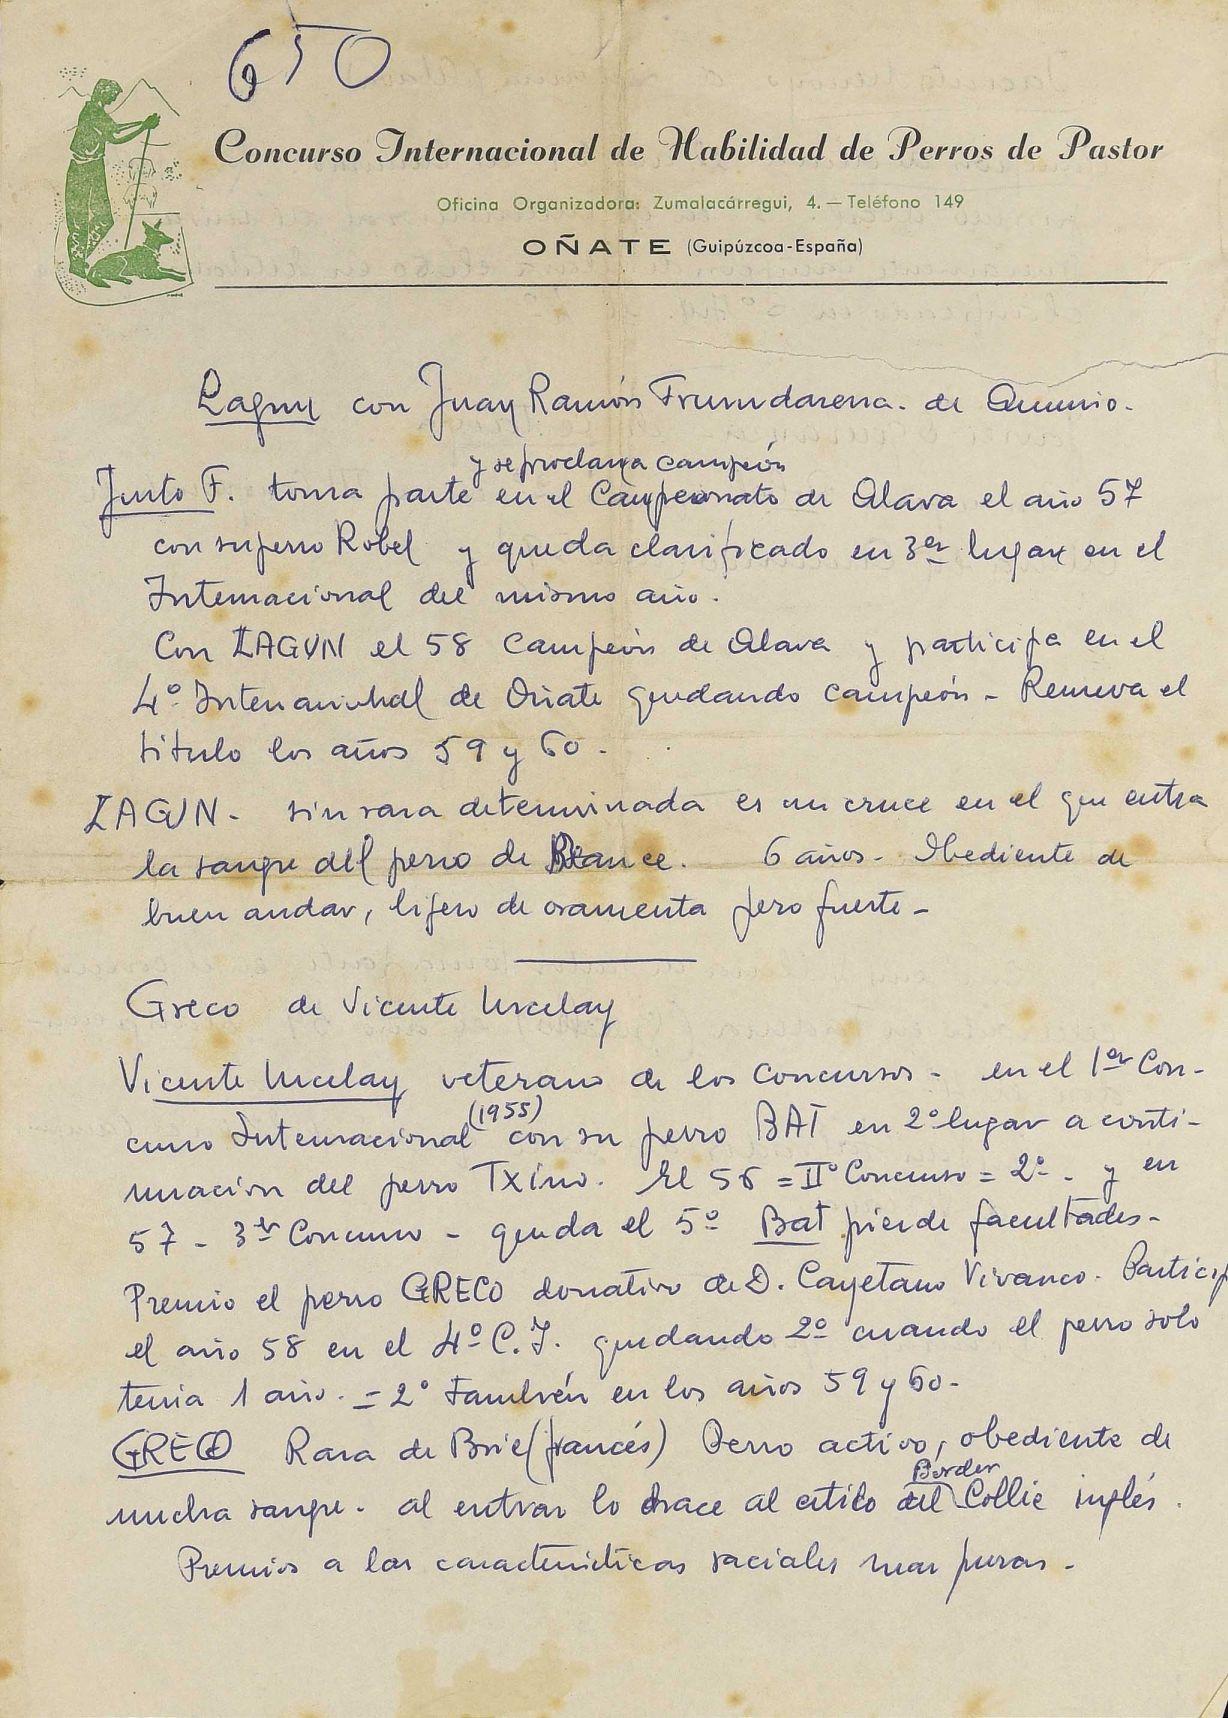 650
Concurso Internacional de Habilidad de Perros de Pastor
Oficina Organizadora: Zumalacárregui, 4. — Teléfono 149
OÑATE (Guipúzcoa-España)
Lagun con Juan Ramón de
y se proclama campeón
Justo F. toma parte en el Campeonato de Alava el año 57
con su perro Robel y queda clasificado en 3er lugar en el
Internacional del mismo año.
Con LAGUN el 58 Campeón de Alava y participa en el
4º Internacional de Oñate quedando campeón - Renueva el
titulo los años 59 y 60 -
LAGUN - sin rasa determinada es un cruce en el que entra
la sangre del perro de 6 años - Obediente de
buen andar, lijero de osamenta pero fuerte -
Greco de Vicente Urcelay
Vicente Urcelay veterano de los concursos - en el 1er Con-
(1955)
curso Internacional con su perro BAT en 2º lugar a conti-
nuacion del perro Txino. El 56 = IIº Concurso = 2º - y en
57 - 3er Concurso - queda el 5º Bat pierde facultades -
Premio el perro GRECO donativo de D. Cayetano Vivanco. Particip
el año 58 en el 4º C.I. quedando 2º cuando el perro solo
tenia 1 año. = 2º también en los años 59 y 60 -
GRECO Rasa de Brie (francés) Perro activo, obediente de
Border
mucha sangre - al entrar lo hace al estilo del Collie inglés.
Premios a las características raciales mas puras -